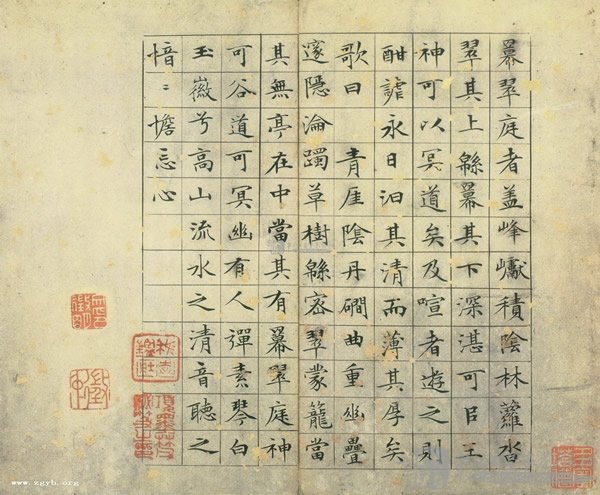 羃翠庭者盖峰巘積陰林蘿沓
翠其上緜羃其下深湛可㠯王
神可以冥道矣及喧者遊之則
酣謔永日汩其清而薄其厚矣
歌曰 青厓陰丹磵曲重幽疊
邃隱淪躅草樹緜密翠蒙籠當
其無亭在中當其有羃翠庭神
可谷道可冥幽有人彈素琴白
玉徽兮高山流水之清音聽之
愔〻憺忘心
項墨林父秘笈之印
www.zgyb.org